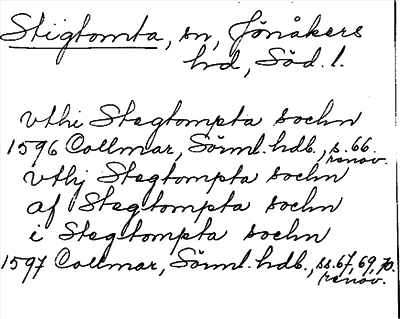 Stigtomta, sn, Jönåkers
hd, Söd. l.
vthi Stegtompta sochn
1596 Collmar, Sörml. hdb., s. 66.
renov.
vthj Stegtompta sochn
af Stegtompta sochn
i Stegtompta sochn
1597 Collmar, Sörml. hdb., ss. 67, 69, 70.
renov.